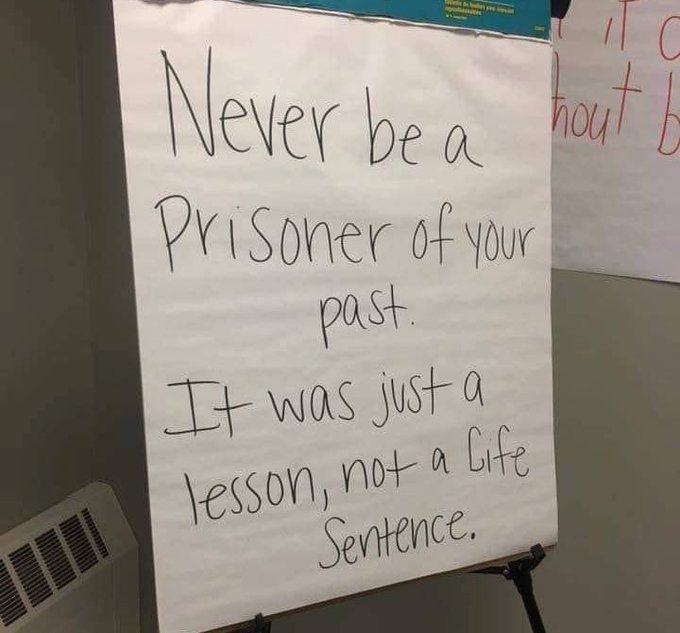 Never be a
Prisoner of your
past.
It was just a
lesson, not a Life
Sentence.
it
hout b